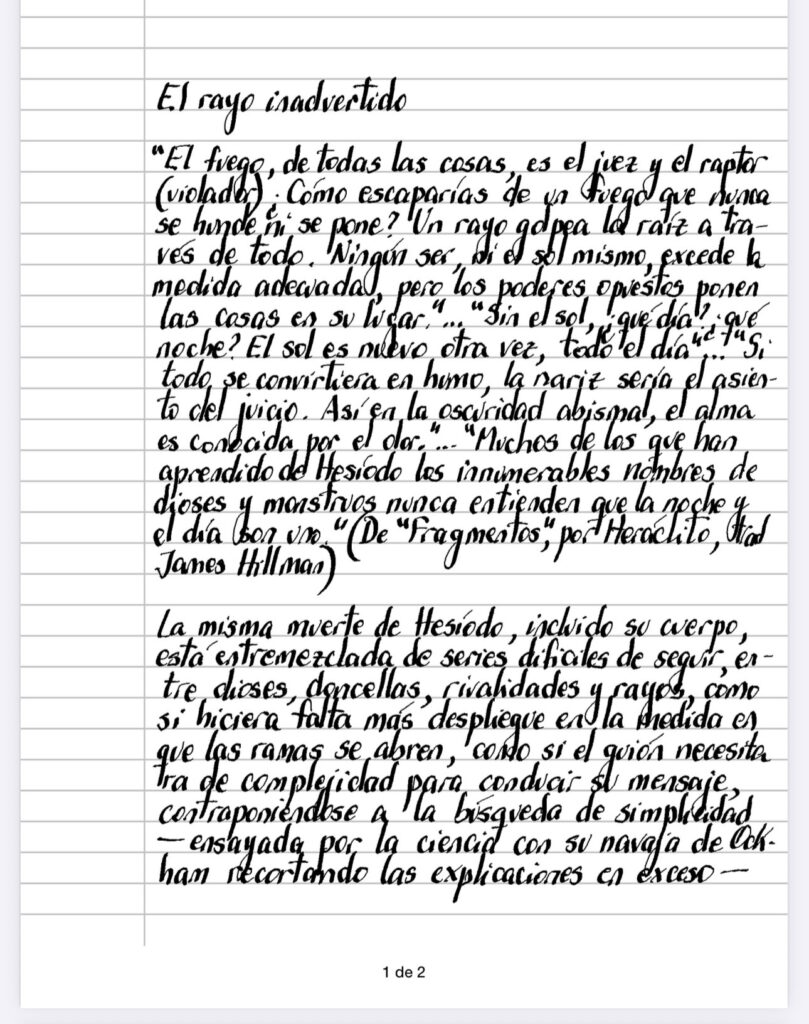 El rayo inadvertido
"El fuego, de todas las cosas, es el juez y el raptor
(violador). ¿Cómo escaparías de un fuego que nunca
se hunde ni se pone? Un rayo golpea la raíz a tra-
vés de todo. Ningún ser, ni el sol mismo, excede la
medida adecuada, pero los poderes opuestos ponen
las cosas en su lugar."... "Sin el sol, ¿qué día? ¿qué
noche? El sol es nuevo otra vez, todo el día"... "Si
todo se convirtiera en humo, la nariz sería el asien-
to del juicio. Así en la oscuridad abismal, el alma
es conocida por el olor."... "Muchos de los que han
aprendido de Hesíodo los innumerables nombres de
dioses y monstruos nunca entienden que la noche y
el día son uno." (De "Fragmentos", por Heráclito, trad
James Hillman)
La misma muerte de Hesíodo, incluido su cuerpo,
está entremezclada de series difíciles de seguir, en-
tre dioses, doncellas, rivalidades y rayos, como
si hiciera falta más despliegue en la medida en
que las ramas se abren, como si el guión necesita
ra de complejidad para conducir su mensaje,
contraponiéndose a la búsqueda de simplicidad
—ensayada por la ciencia con su navaja de Ock-
ham recortando las explicaciones en exceso—
1 de 2